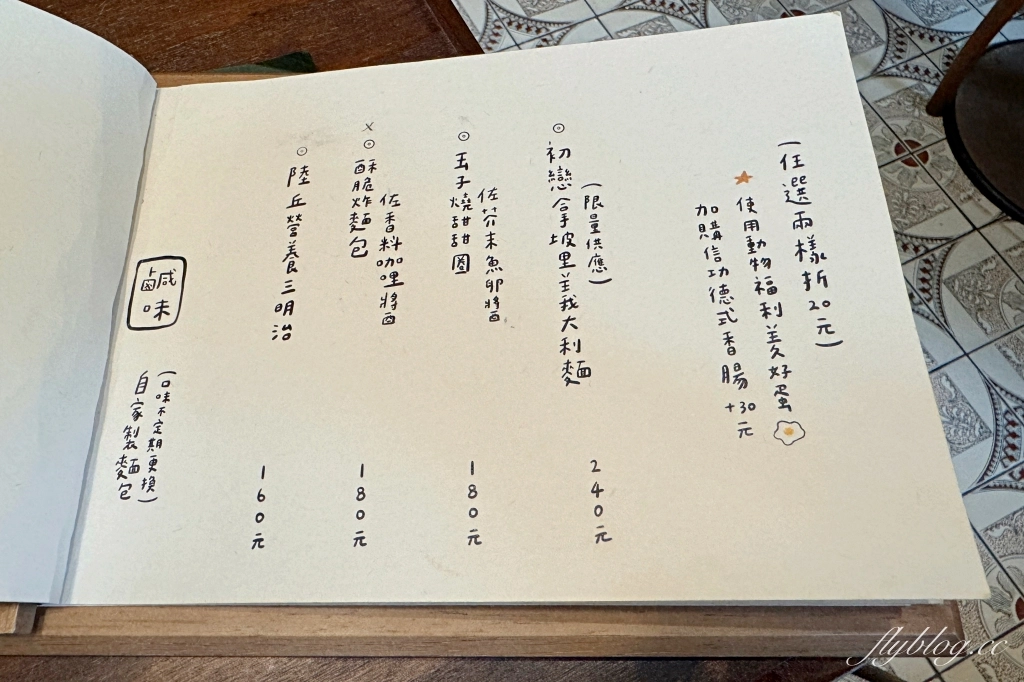 鹹味
自家製麵包
(口味不定期更換)
陸丘營養三明治
160元
酥脆炸麵包
佐香料咖哩醬
180元
玉子燒甜甜圈
佐芥末魚卵醬
180元
初戀拿坡里義大利麵
(限量供應)
240元
加購信功德式香腸 +30元
使用動物福利美好蛋
(任選兩樣折20元)
flyblog.cc